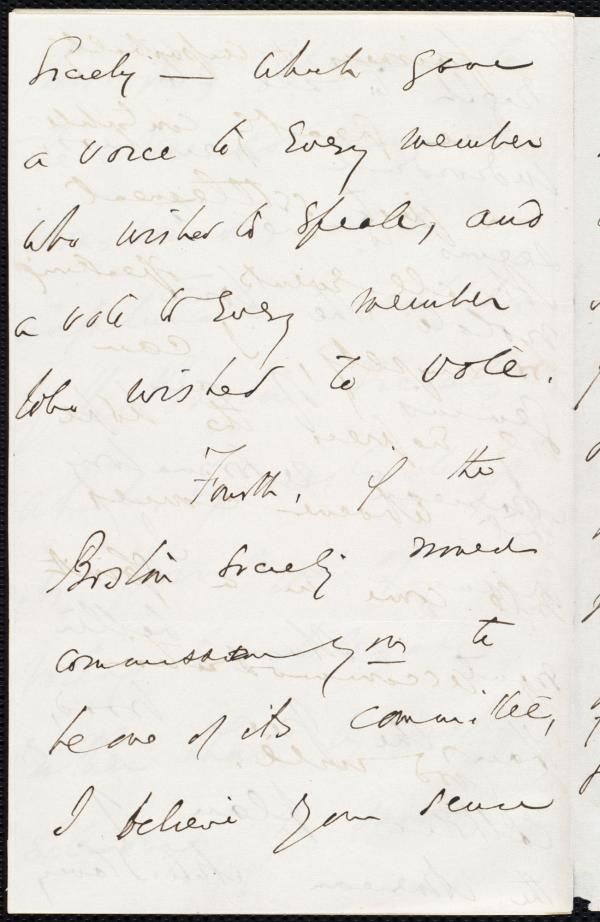 Society — which gave
a voice to every member
who wished to speak, and
a vote to every member
who wished to vote.
Fourth. If the
Boston Society moved
commission you to
be one of its committee,
I believe your sense